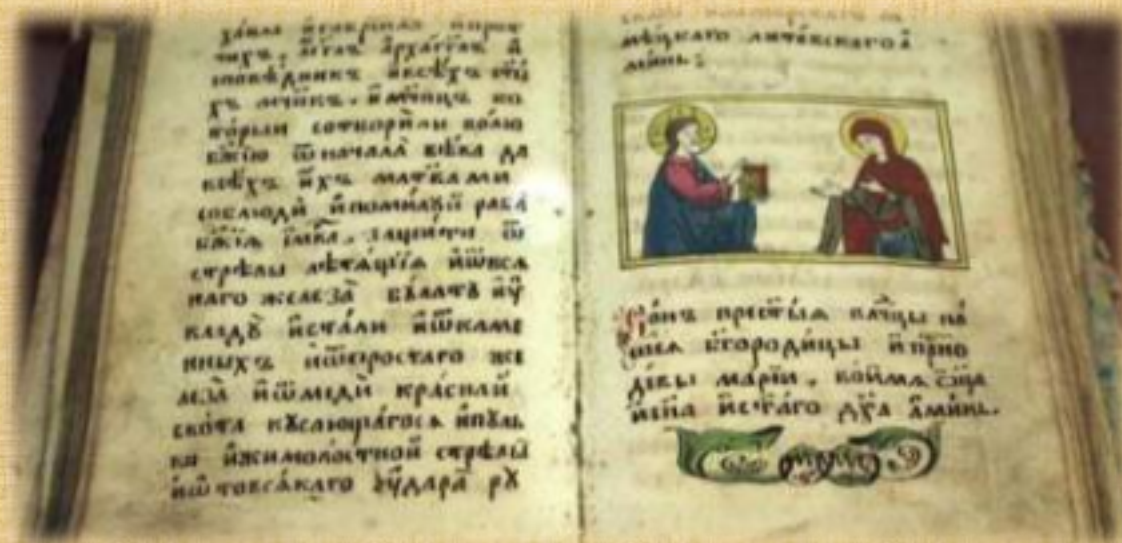 тихъ, а҆гг҃лъ а҆рха́гг҃лъ
хъ мч҃нкъ. и҆мч҃ницъ ко
то́рыи сотвори́ли во́лю
бж҃їю ѿ начала̀ вѣ́ка да
всѣ́хъ и҆́хъ мл҃твами
соблюдѝ и҆поми́лꙋй раба̀
бж҃їѧ и҆́мкъ. защити ѿ
стрѣлы лѣта́щїѧ и҆ѿвсѧ
каго желѣза̀ бꙋла́тꙋ и҆ꙋ
кладꙋ̀ и҆ста́ли и҆ѿкаме
нныхъ и҆ѿпростаго же
лѣза̀ и҆ѿмедѝ кра́сныѧ
ско́та кꙋса́ющагосѧ и҆пꙋль
ки и҆жимолостной стрѣлы
и҆ѿ товсѧ́каго ᲂу҆да́ра рꙋ
ме́цкаго лито́вскаго а҆
ми́нь:
Со́нъ прест҃ы́ѧ влⷣчцы на́
шеѧ бг҃оро́дицы и҆прно
дѣ́вы мр҃і́и. воймѧ ѻ҆ц҃а̀
и҆сн҃а и҆ст҃а́го дх҃а а҆ми́нь.